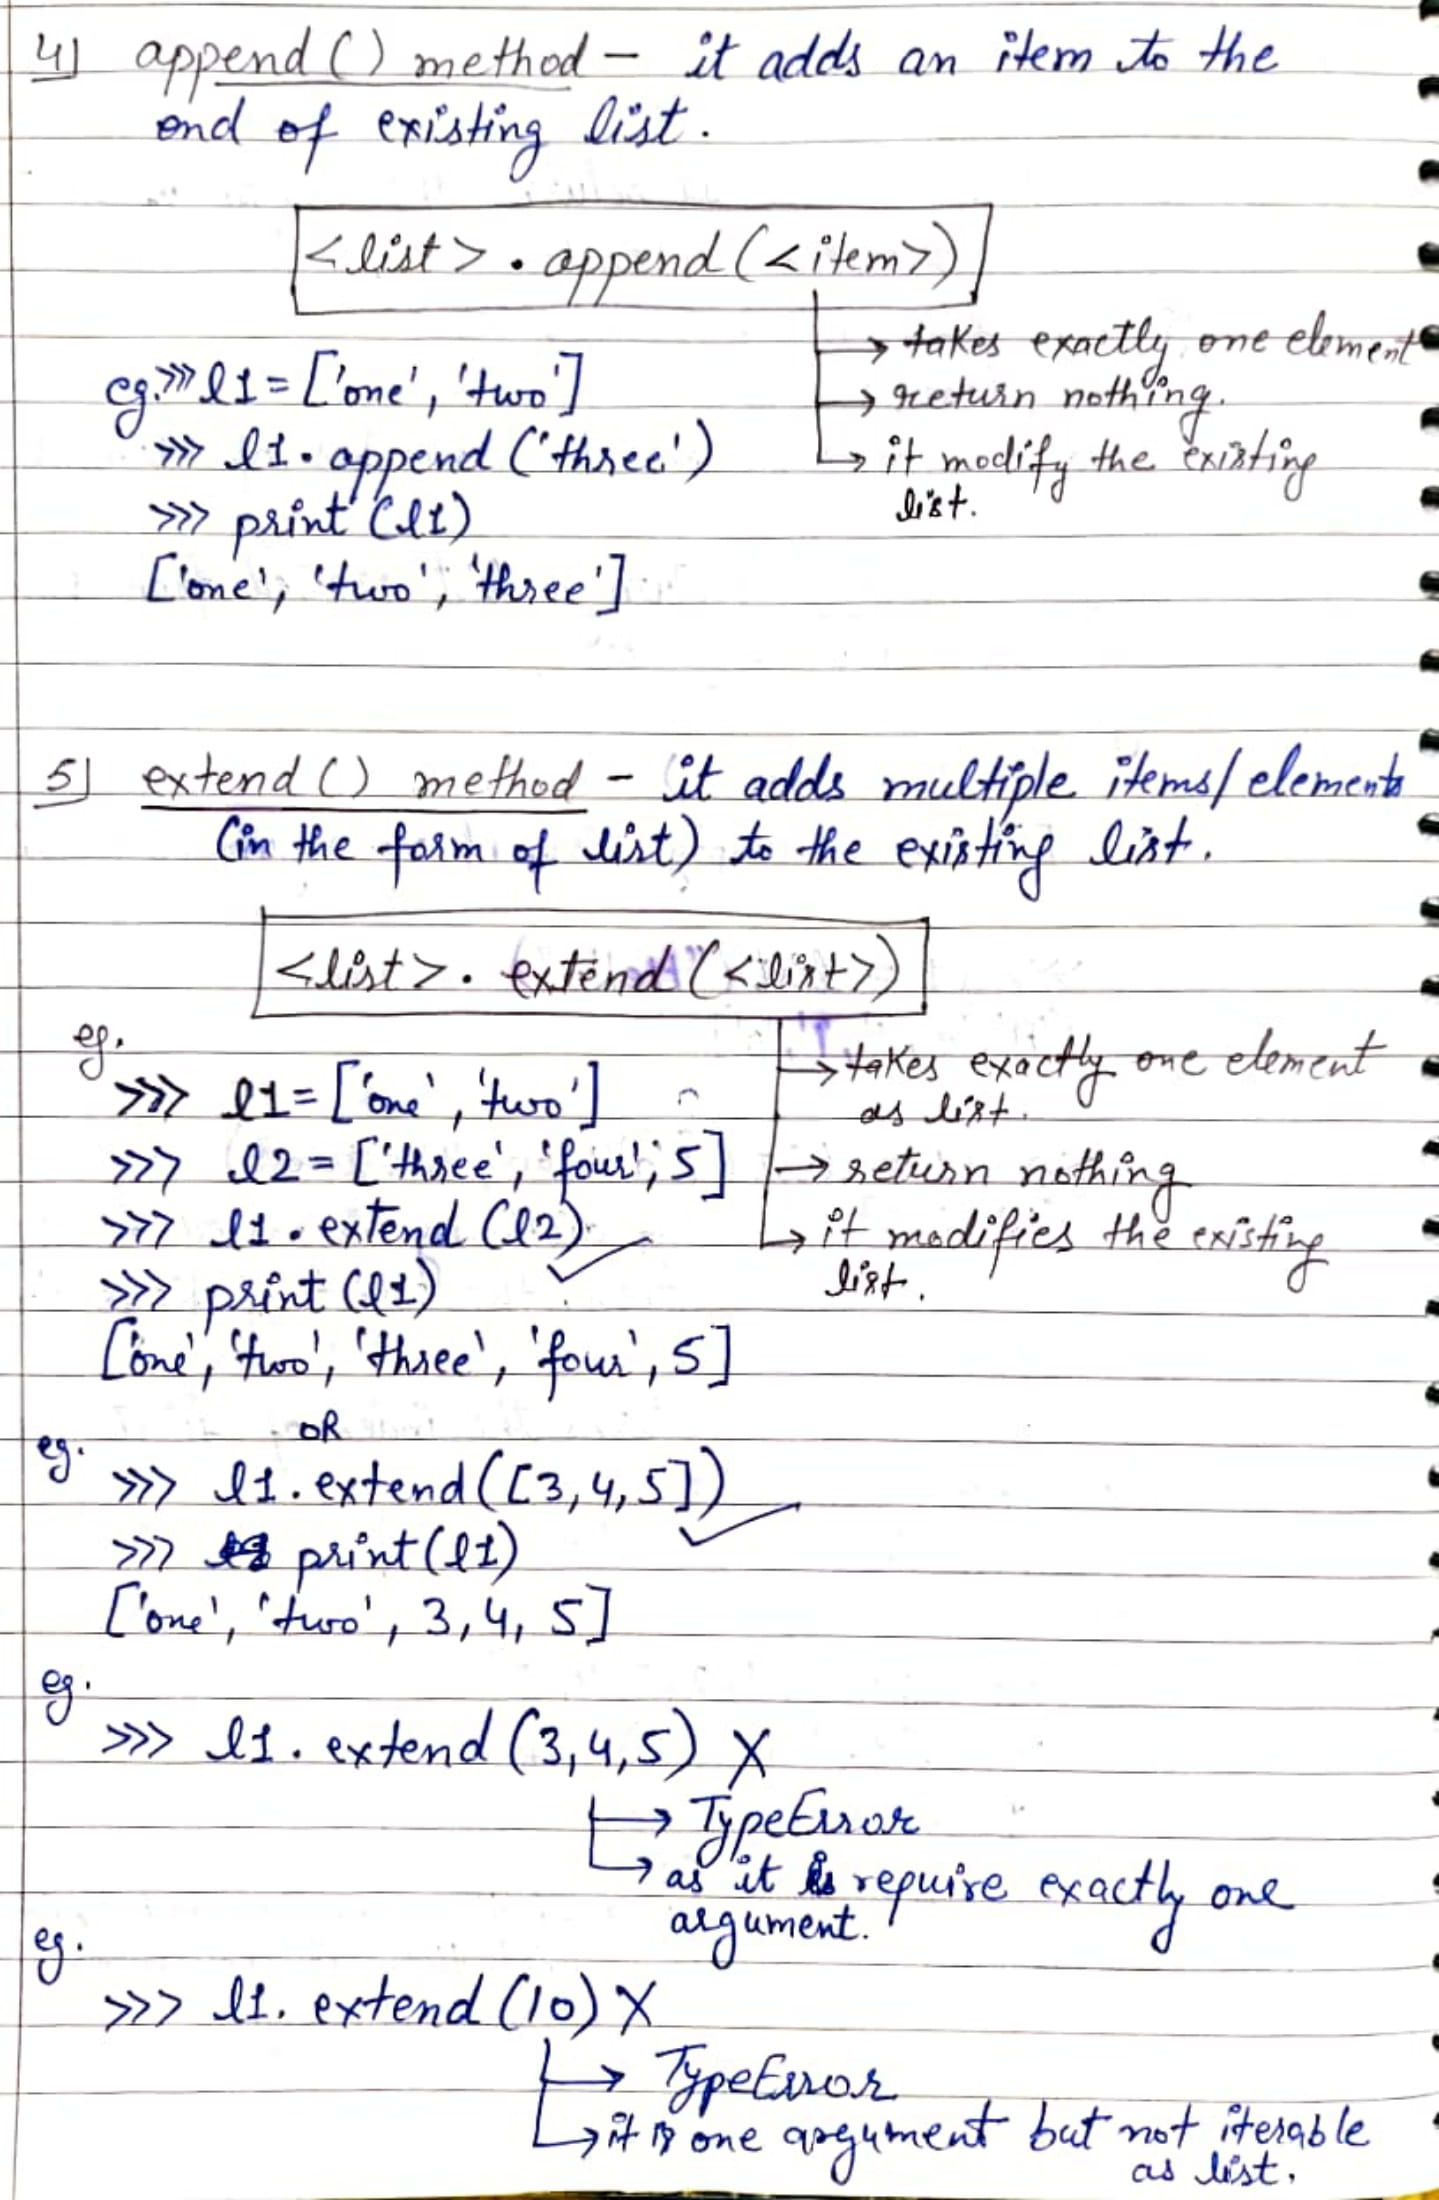 4] append() method - it adds an item to the
end of existing list.
<list>.append(<item>)
→ takes exactly one element
→ return nothing.
→ it modify the existing
list.
eg. >>> l1 = ['one', 'two']
>>> l1.append('three')
>>> print(l1)
['one', 'two', 'three']
5] extend() method - it adds multiple items/elements
(in the form of list) to the existing list.
<list>.extend(<list>)
→ takes exactly one element
as list.
→ return nothing
→ it modifies the existing
list.
eg.
>>> l1 = ['one', 'two']
>>> l2 = ['three', 'four', 5]
>>> l1.extend(l2) ✓
>>> print(l1)
['one', 'two', 'three', 'four', 5]
OR
eg.
>>> l1.extend([3,4,5]) ✓
>>> print(l1)
['one', 'two', 3, 4, 5]
eg.
>>> l1.extend(3,4,5) X
→ TypeError
→ as it require exactly one
argument.
eg.
>>> l1.extend(10) X
→ TypeError
→ it is one argument but not iterable
as list.